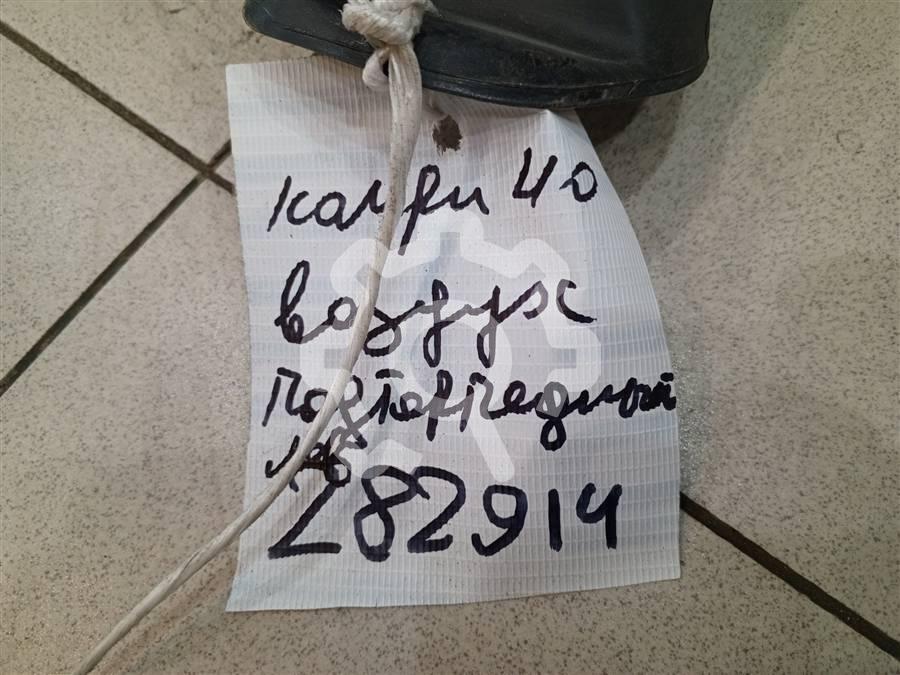 камри 40
воздух
подт передний
лв
282914